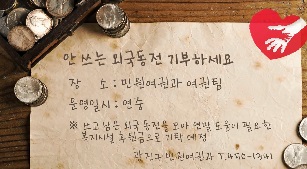 안 쓰는 외국동전 기부하세요
장 소 : 민원여권과 여권팀
운영일시 : 연중
※ 쓰고 남은 외국 동전을 모아 연말 도움이 필요한
복지시설 후원금으로 기탁 예정
광진구 민원여권과 T.450-1341